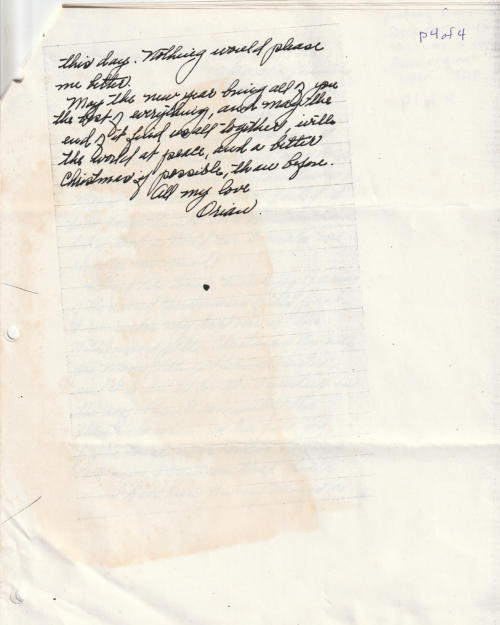 p4 of 4
this day. Nothing would please
me better.
May the new year bring all of you
the best of everything, and may the
end of it find us all together, with
the world at peace, and a better
Christmas if possible, than before.
All my love
Orian.